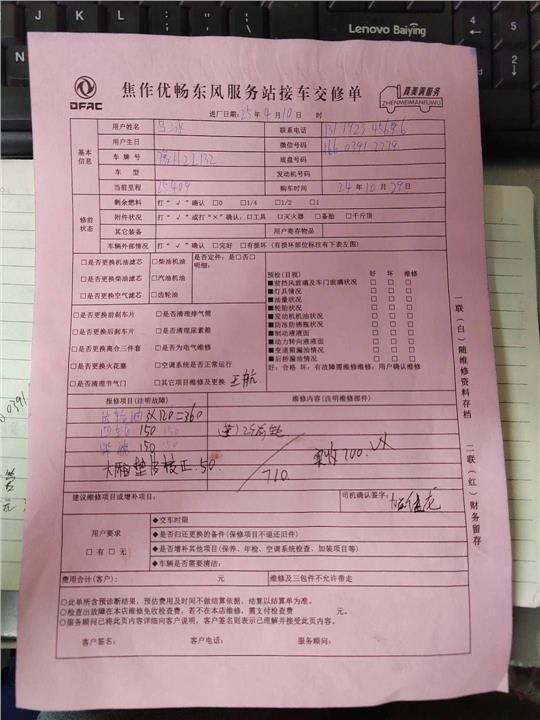 Lenovo Baiying
DFAC
焦作优畅东风服务站接车交修单
真美满服务
ZHENMEIMANFUWU
进厂日期: 25年 4月 10日 时
基本信息
用户姓名
联系电话
用户生日
微信号码 166 0391 2279
车牌号
底盘号码
车型
发动机号码
当前里程 25409
购车时间 24年10月29日
修前状态
剩余燃料 打“√”确认 □0 □1/4 □1/2 □1
附件状况 打“√”或打“×”确认:□工具 □灭火器 □备胎 □千斤顶
其它装备 用户寄存物品
车辆外部情况 打“√”确认 □完好 □有损坏(有损坏部位标注有下表左图)
□是否更换机油滤芯 □柴油机油
□是否更换柴油滤芯 □汽油机油
□是否更换空气滤芯 □齿轮油
是否定件: 是□否□
明细:
□是否更换前刹车片 □是否清理排气筒
□是否更换后刹车片 □是否清理尿素箱
□是否更换离合三件套 □是否为电气维修
□是否更换火花塞 □空调系统是否正常运行
□是否清理节气门 □其它项目维修及更换
预检(目视) 好 坏 维修
■前挡风玻璃及车门玻璃状况 □ □ □
■灯具情况 □ □ □
■油量状况 □ □ □
■轮胎状况 □ □ □
■发动机机油状况 □ □ □
■防冻防锈瓶状况 □ □ □
■制动液液面 □ □ □
■动力转向液液面 □ □ □
■变速箱漏油情况 □ □ □
■后桥漏油情况 □ □ □
好: 合格 坏: 有故障需维修维修: 用户确认维修
报修项目(注明故障)
维修内容(注明维修部件)
3X120=360
150 150
150 150
大厢垫皮校正.50.
710
实收700.
建议维修项目或增补项目:
司机确认签字:
用户要求
□有 □无
◆交车时限
◆是否归还更换的备件(保修项目不退还旧件)
◆是否增补其他项目(保养、年检、空调系统检查、加装项目等)
◆车辆是否需要清洁:
费用合计(客户): 元
维修及三包件不允许带走
○此单所含预诊断结果,预估费用及时间不做结算依据,结复以结算单为准。
○检查出故障在本店维修免收检查费,若不在本店维修,需支付检查费 元。
○服务顾问已将此页内容详细向客户说明,客户签名则表示已理解并接受此页内容。
客户签名: 客户电话: 服务顾问:
一联(白)随维修资料存档
二联(红)财务留存